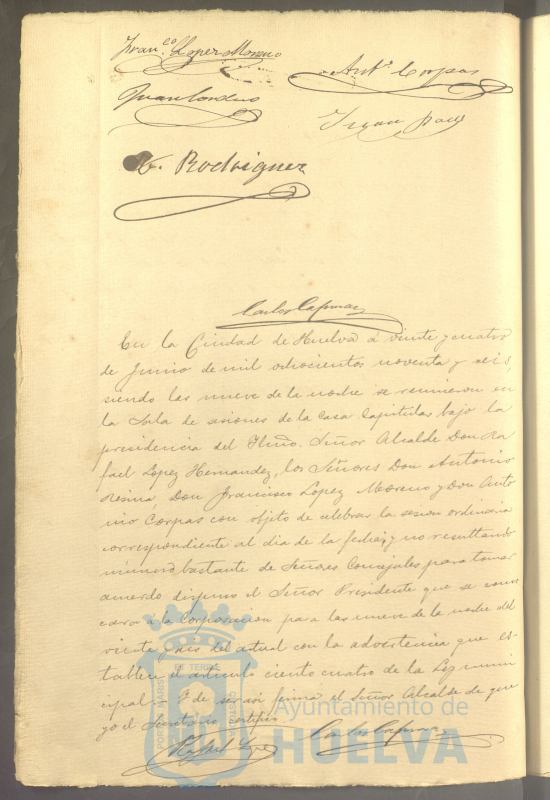 Fran.co Lopez Moreno
Ant.o Corpas
Juan Cordero
Rodriguez
En la Ciudad de Huelva á veinte y cuatro
de Junio de mil ochocientos noventa y seis,
siendo las nueve de la noche se reunieron en
la Sala de sesiones de la Casa Capitular bajo la
presidencia del Iltmo. Señor Alcalde Don Ra
fael Lopez Hernandez, los Señores Don Antonio
Resina Don Francisco Lopez Moreno y Don Anto
nio Corpas con objeto de celebrar la sesion ordinaria
correspondiente al dia de la fecha; y no resultando
número bastante de Señores Concejales para tomar
acuerdo dispuso el Señor Presidente que se convo
cara á la Corporacion para las nueve de la noche del
veinte y seis del actual con la advertencia que es
tablece el articulo ciento cuatro de la Ley muni
cipal. Y de ser asi firma el Señor Alcalde de que
yo el Secretario certifico.
Rafael Lopez
PORTUS MARIS ET TERRAE CUSTODIA
Ayuntamiento de
HUELVA